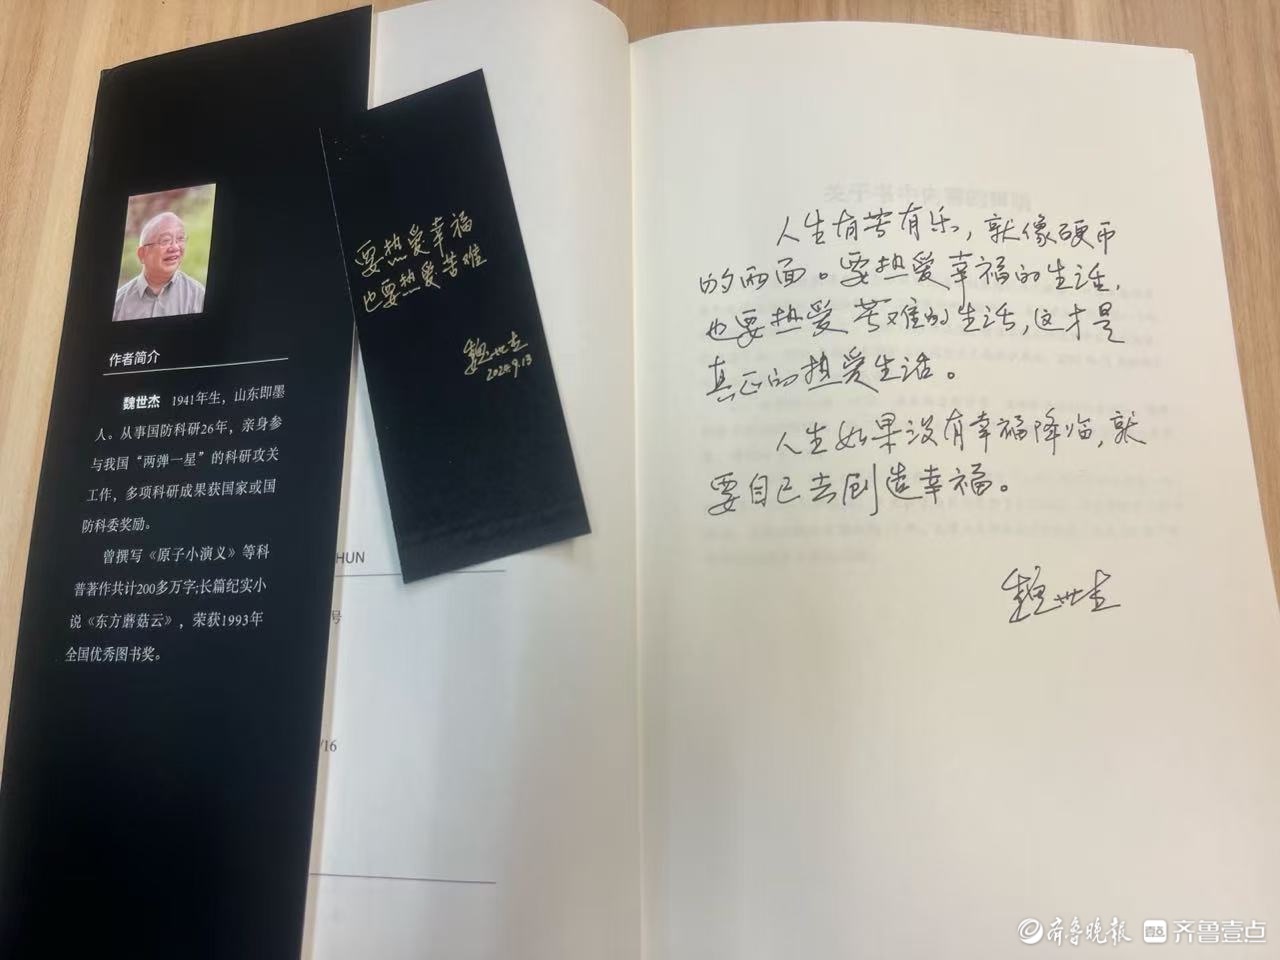 作者简介
魏世杰 1941年生，山东即墨
人。从事国防科研26年，亲身参
与我国“两弹一星”的科研攻关
工作，多项科研成果获国家或国
防科委奖励。
曾撰写《原子小演义》等科
普著作共计200多万字;长篇纪实小
说《东方蘑菇云》，荣获1993年
全国优秀图书奖。
要热爱幸福
也要热爱苦难
魏世杰
2024.9.13
HUN
号
/16
人生有苦有乐，就像硬币
的两面。要热爱幸福的生活，
也要热爱苦难的生活，这才是
真正的热爱生活。
人生如果没有幸福降临，就
要自己去创造幸福。
魏世杰
齐鲁晚报 齐鲁壹点